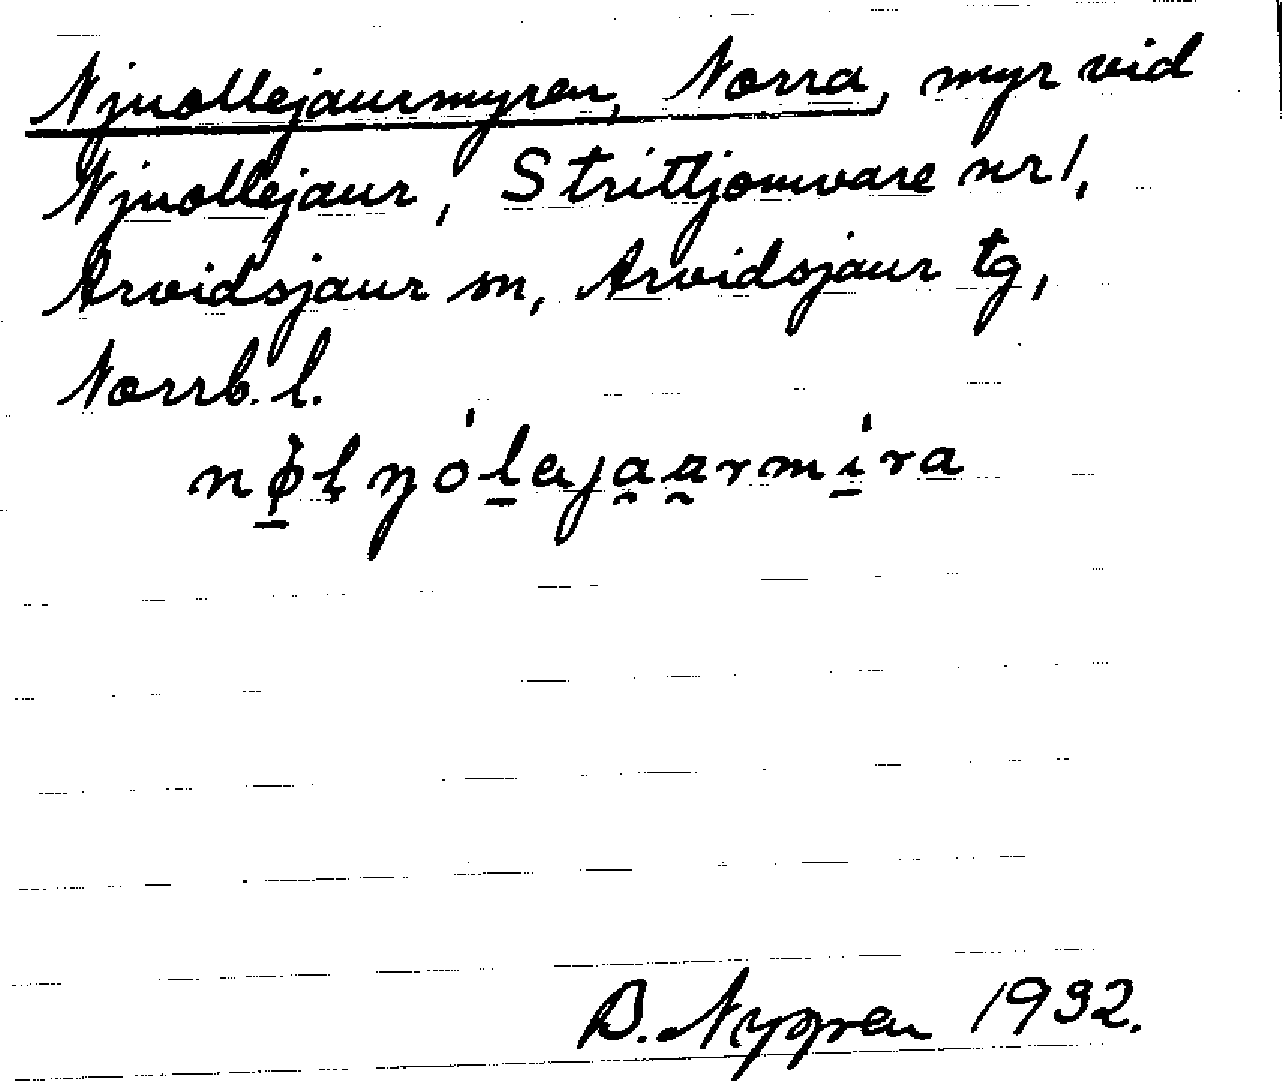 Njuollejaurmyren, Norra, myr vid
Njuollejaur, Strittjomvare nr 1,
Arvidsjaur sn, Arvidsjaur tg,
Norrb. l.
B. Nygren 1932.